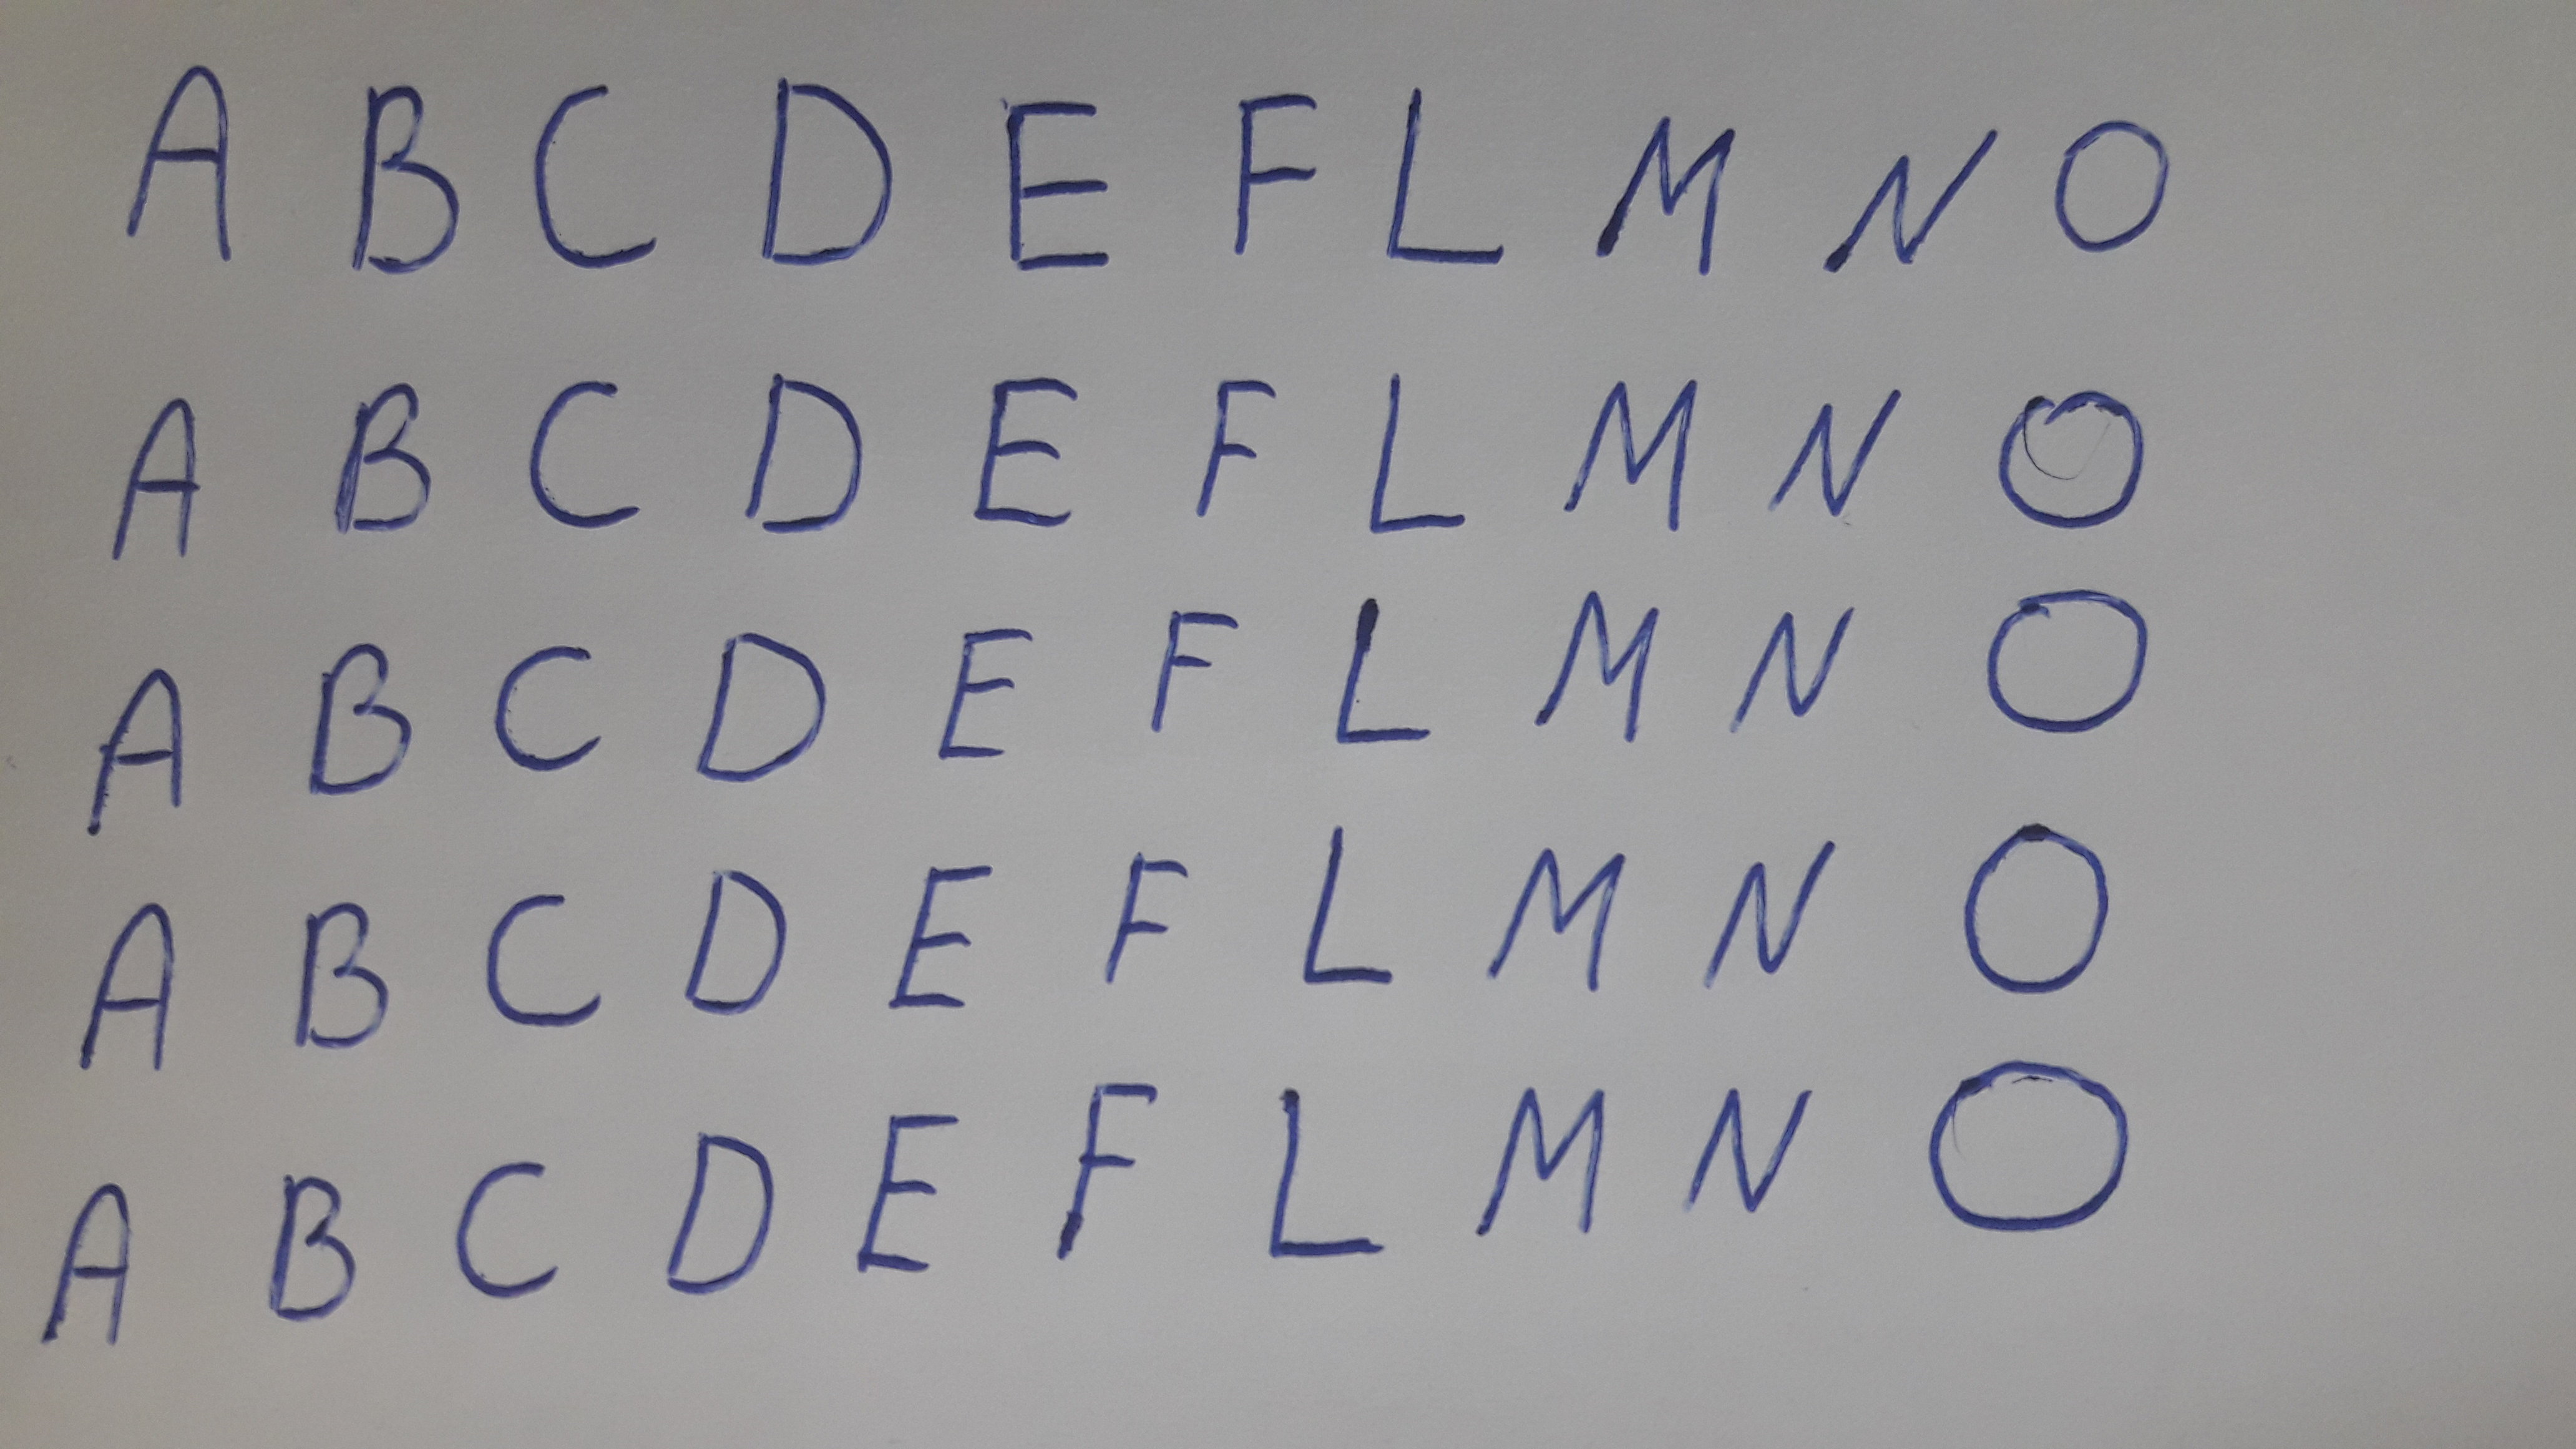 A B C D E F L M N O
A B C D E F L M N O
A B C D E F L M N O
A B C D E F L M N O
A B C D E F L M N O